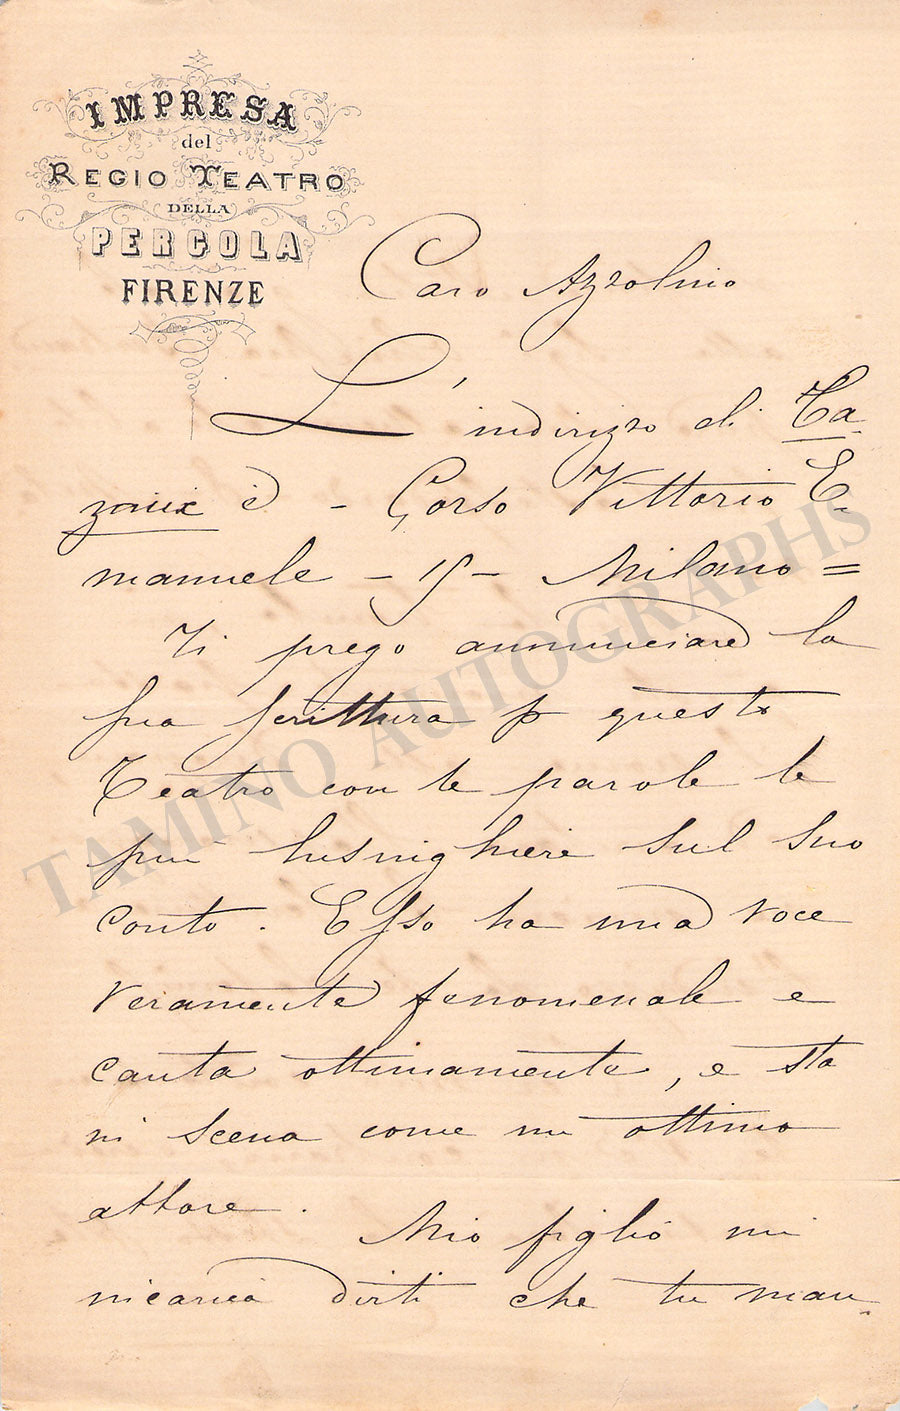 IMPRESA
del
REGIO TEATRO
DELLA
PERGOLA
FIRENZE
Caro Azzolino
L'indirizzo di Ca-
zaux è - Corso Vittorio E-
manuele - 15 - Milano =
Ti prego annunciare la
sua scrittura p questo
Teatro con le parole le
più lusinghiere sul suo
conto. Esso ha una voce
veramente fenomenale e
canta ottimamente, e sta
in scena come un ottimo
attore.
Mio figlio mi
incarica dirti che tu man-
TAMINO AUTOGRAPHS